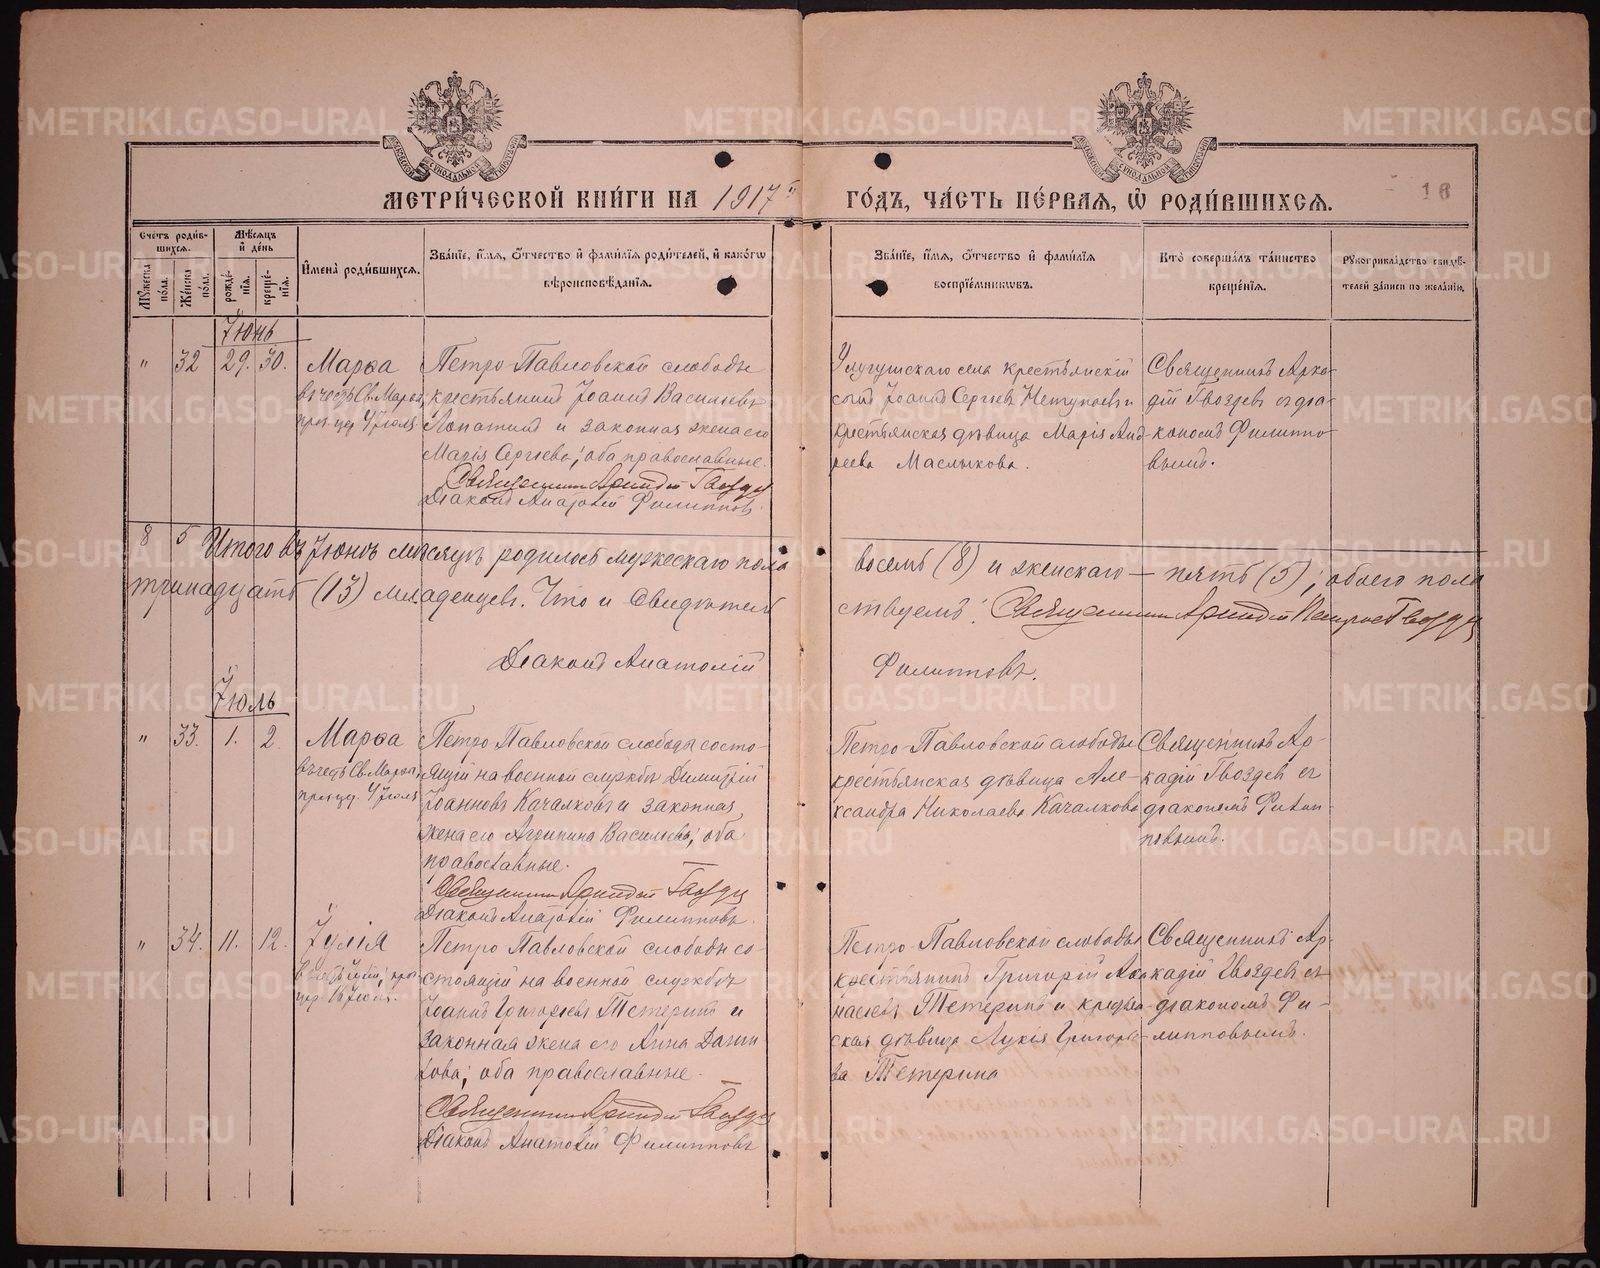 МЕТРИ́ЧЕСКОЙ КНИ́ГИ НА 1917 й
ГО́ДЪ, ЧА́СТЬ ПЕ́РВАЯ, Ѡ҆ РОДИ́ВШИХСЯ.
16
Счетъ родив-
шихся.
Мѣсяцъ
и день
Мужеска
пола.
Женска
пола.
рожде-
нія.
креще-
нія.
Имена родившихся.
Званіе, имя, отчество и фамилія родителей, и какогѡ
вѣроисповѣданія.
Званіе, имя, отчество и фамилія
воспріемниковъ.
Кто совершалъ таинство
крещенія.
Рукоприкладство свидѣ-
телей записи по желанію.
Іюнь
" 32 29. 30.
Марѳа
въ честь Св. Марѳы,
праз. цер. 4 Іюля
Петро-Павловской слободы
крестьянинъ Іоаннъ Васильевъ
Лопатинъ и законная жена его
Марія Сергѣева; оба православные.
Священникъ Аркадій Гвоздевъ
Діаконъ Анатолій Филипповъ.
крестьянскій
сынъ Іоаннъ Сергѣевъ
крестьянская дѣвица Марія Анд-
реева Маслыкова.
Священникъ Арка-
дій Гвоздевъ съ діа-
кономъ Филиппо-
вымъ.
8 5 Итого въ Іюнѣ мѣсяцѣ родилось мужескаго пола
восемь (8) и женскаго — пять (5); обоего пола
тринадцать (13) младенцевъ. Что и свидѣтель
ствуемъ: Священникъ Аркадій Петровъ Гвоздевъ
Діаконъ Анатолій
Филипповъ.
Іюль
" 33. 1. 2.
Марѳа
въ честь Св. Марѳы,
праз. цер. 4 Іюля
Петро Павловской слободы состо-
ящій на военной службѣ Димитрій
Іоанновъ Качалковъ и законная
жена его Агрипина Васильева; оба
православные.
Священникъ Аркадій Гвоздевъ
Діаконъ Анатолій Филипповъ.
Петро-Павловской слободы
крестьянская дѣвица Але-
ксандра Николаева Качалкова
Священникъ Ар-
кадій Гвоздевъ съ
діакономъ Филип-
повымъ.
" 34. 11. 12.
Іулія
въ честь Іуліи; праз.
цер. 16 Іюля.
Петро Павловской слободы со-
стоящій на военной службѣ
Іоаннъ Григорьевъ Тетеринъ и
законная жена его Анна Данни
лова; оба православные.
Священникъ Аркадій Гвоздевъ
Діаконъ Анатолій Филипповъ
Петро-Павловской слободы
крестьянинъ Григорій Аѳа
насіевъ Тетеринъ и крестьян
ская дѣвица Лукія Григорье-
ва Тетерина
Священникъ Ар-
кадій Гвоздевъ съ
діакономъ Фи-
липповымъ.
METRIKI.GASO-URAL.RU